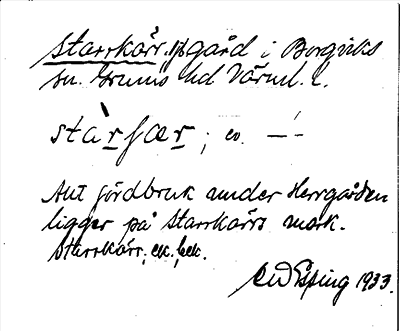 Starrkärr, gård i Borgviks
sn. Grums hd Värml. l.
stàrꞔær; ev. –'–
Allt jordbruk under Herrgården
ligger på Starrkärrs mark.
Starrkärr, ek. bek.
1933.